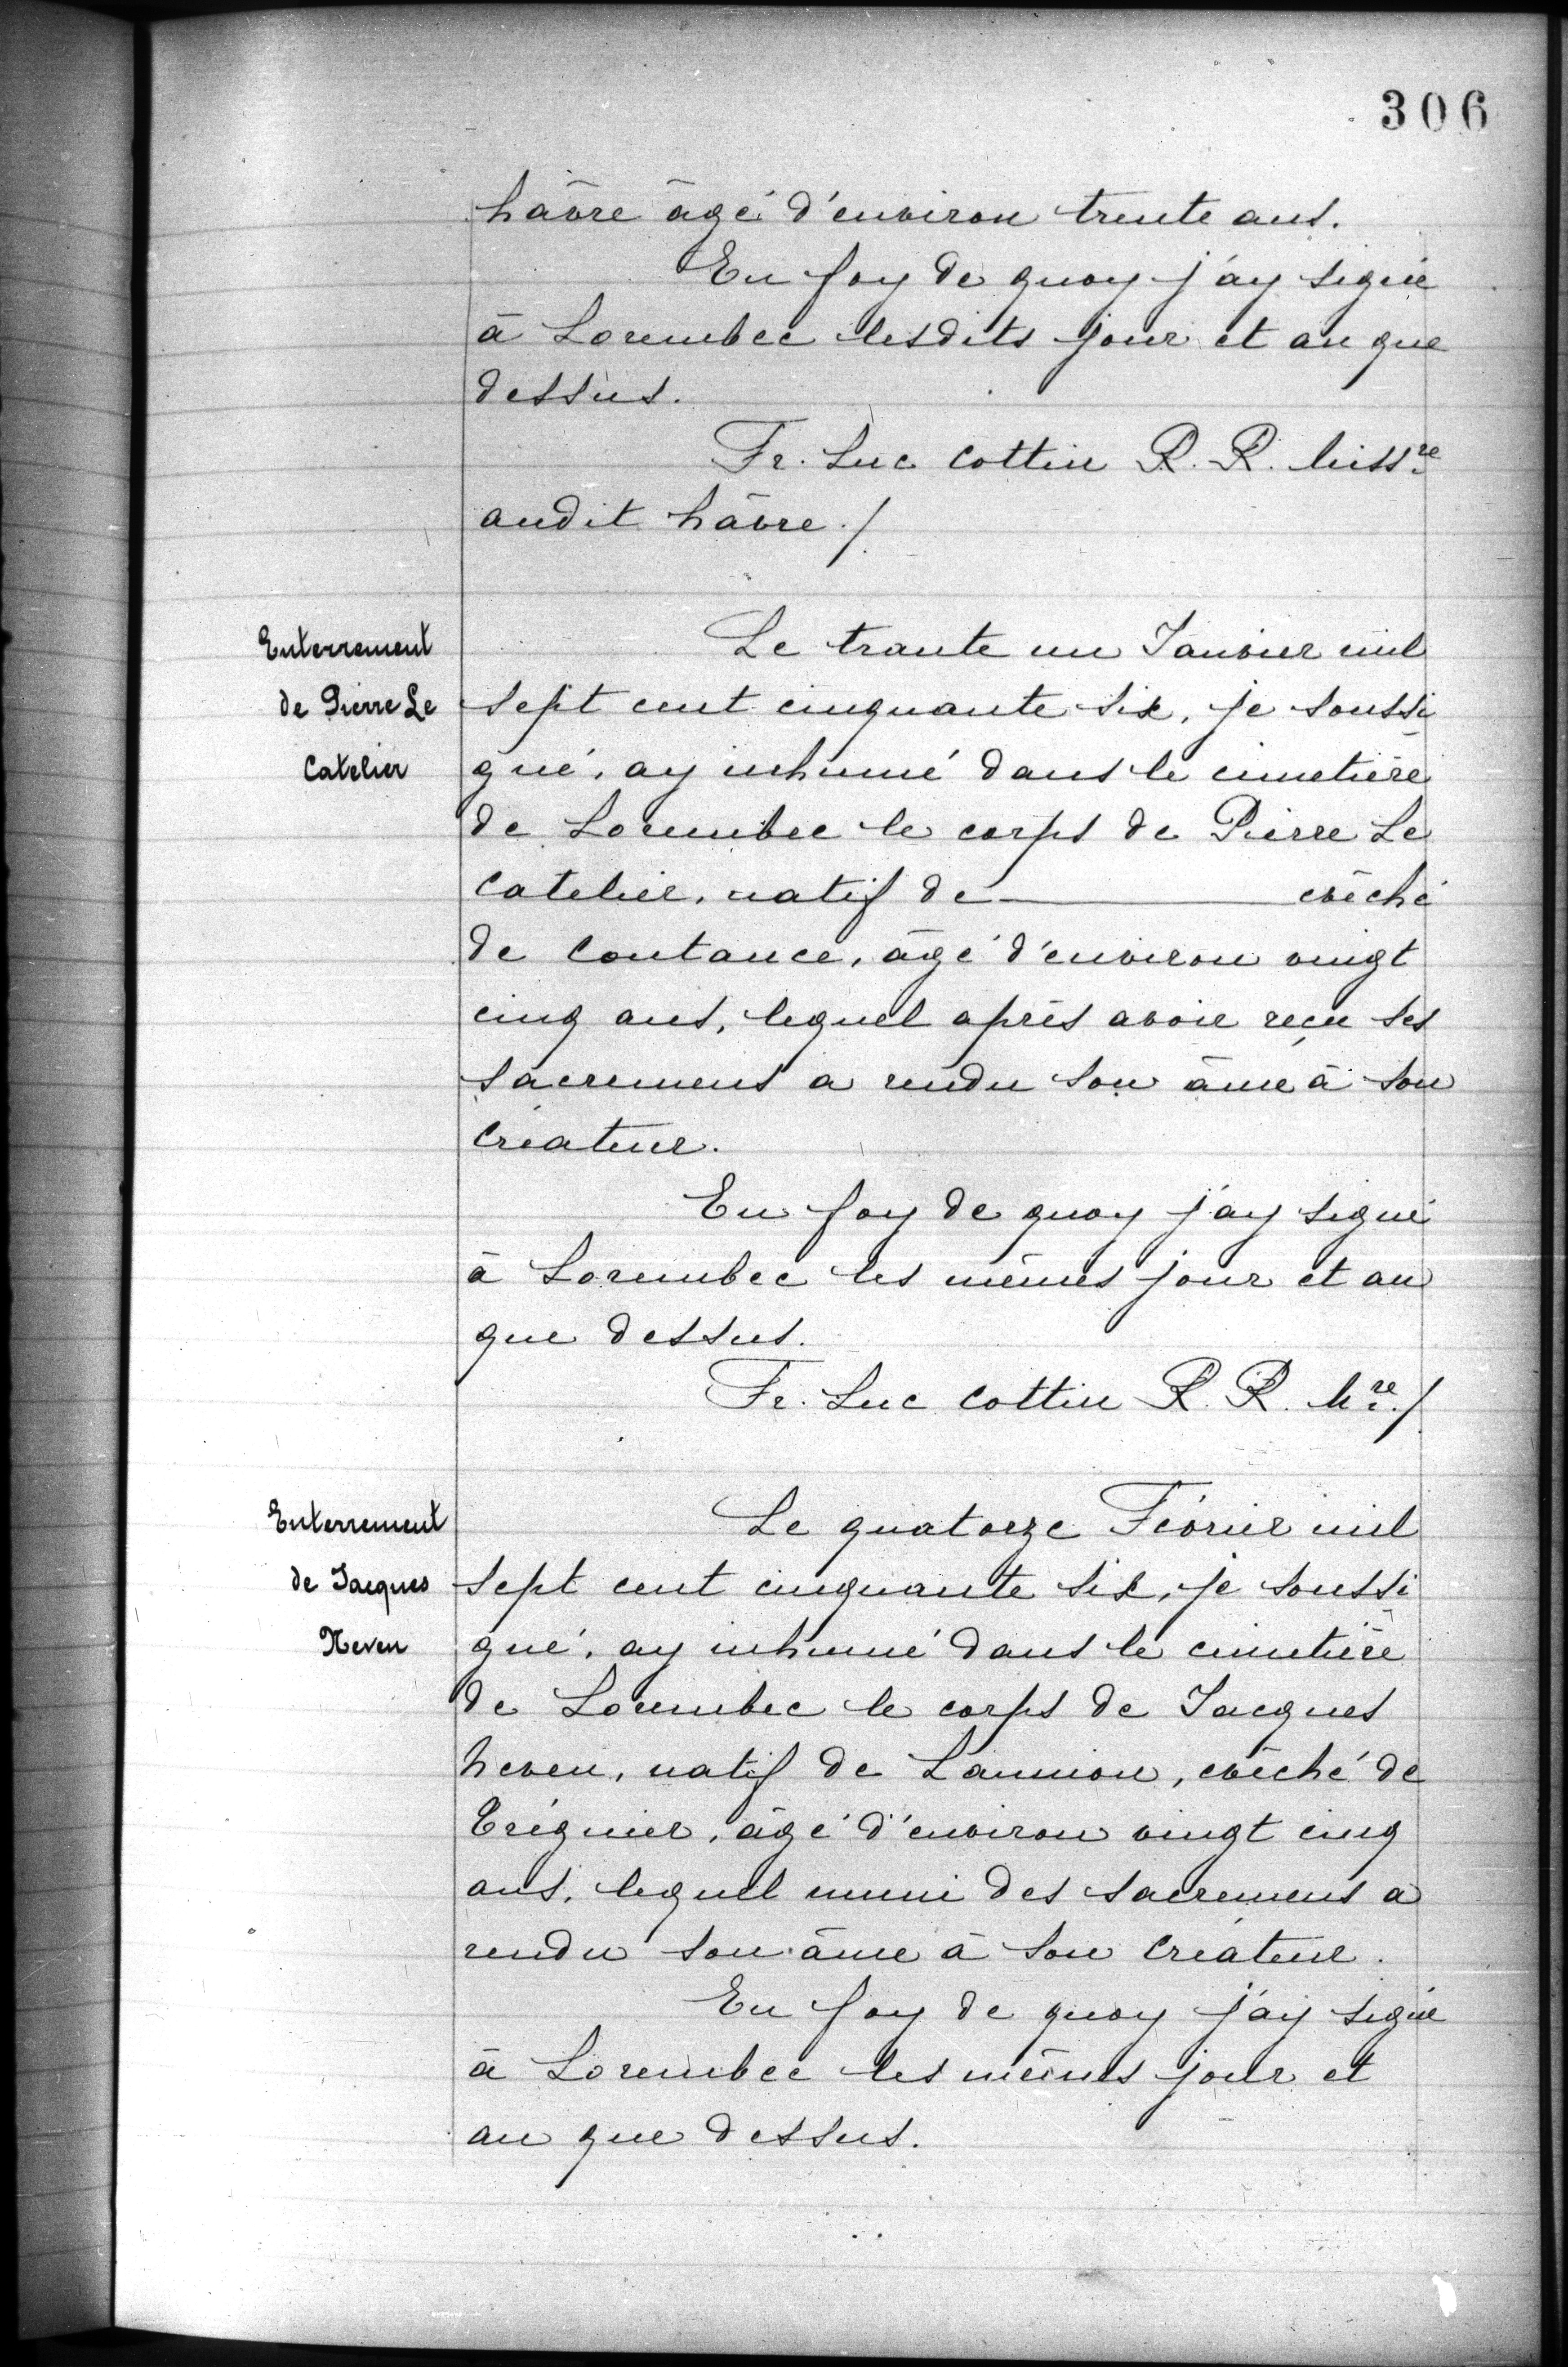 306
hâvre âgé d'environ trente ans.
En foy de quoy j'ay signé
à Lorembec lesdits jour et an que
dessus.
Fr. Luc Cottin R. R. Miss^re
audit hâvre./
Enterrement
de Pierre Le
Catelier
Le trante un Janvier mil
sept cent cinquante six, je soussi
gné, ay inhumé dans le cimetière
de Lorembec le corps de Pierre Le
Catelier, natif de ———— evêché
de Coutance, âgé d'environ vingt
cinq ans, lequel après avoir reçu ses
sacremens a rendu son âme à son
Créateur.
En foy de quoy j'ay signé
à Lorembec les mêmes jour et an
que dessus.
Fr. Luc Cottin R. R. M^re./
Enterrement
de Jacques
Neven
Le quatorze Février mil
sept cent cinquante six, je soussi
gné, ay inhumé dans le cimetière
de Lorembec le corps de Jacques
Neven, natif de Lannion, evêché de
Tréguier, âgé d'environ vingt cinq
ans, lequel muni des sacremens a
rendu son âme à son Créateur.
En foy de quoy j'ay signé
à Lorembec les mêmes jour et
an que dessus.